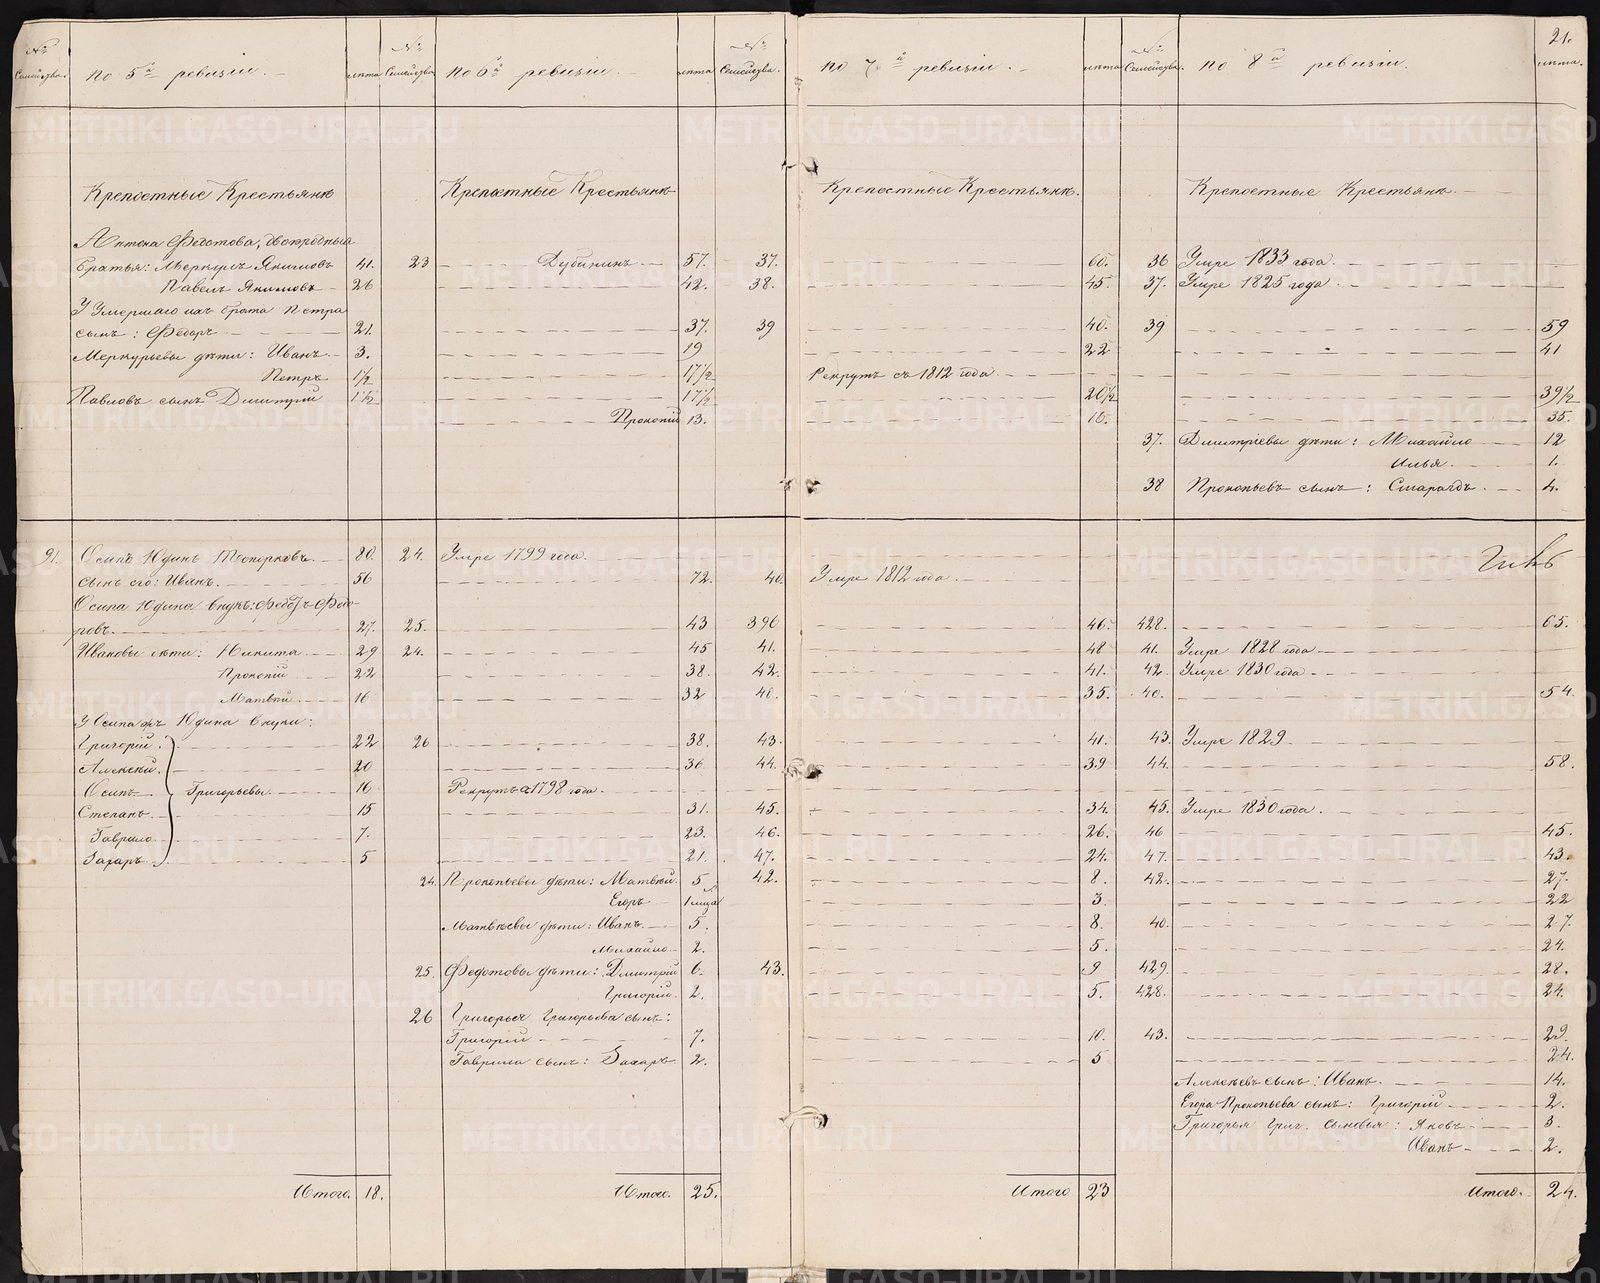 21.
№ Семейства. по 5й ревизiи. лѣта № Семейства по 6й ревизiи. лѣта № Семейства. по 7й ревизiи. лѣта № Семейства. по 8й ревизiи. лѣта.
Крепостные Крестьянѣ Крепостные Крестьянѣ Крепостные Крестьянѣ. Крепостные Крестьянѣ
Антона Федотова, двоюродныя
братья: Меркулъ Якимовъ 41. 23 Дубининъ 57. 37. 60. 36 Умре 1833 года.
Павелъ Якимовъ 26 42. 38. 45. 37. Умре 1825 года.
У Умершаго ихъ брата Петра
сынъ: Федоръ 21. 37. 39 40. 39 59
Меркурьевы дѣти: Иванъ 3. 19 22 41
Петръ 1½ 17½ Рекрутъ съ 1812 года.
Павловъ сынъ Дмитрiй 1½ 17½ 20½ 39½
Прокопiй 13. 16. 35.
37. Дмитрiевы дѣти: Михайло 12
Илья 1.
38 Прокопьевъ сынъ: Смарагдъ 4.
91. Осипъ Юдинъ 80. 24. Умре 1799 года.
сынъ его: Иванъ. 56 72. 40. Умре 1812 года.
Осипа Юдина внукъ: Федотъ Федо-
ровъ. 27. 25. 43 396 46. 428. 65.
Ивановы дѣти: Никита 29 24. 45 41. 48 41. Умре 1828 года
Прокопiй 22 38. 42. 41. 42. Умре 1830 года
Матвѣй 16 32 40. 35. 40. 54.
У Осипа жъ Юдина внуки:
Григорiй. 22 26 38. 43. 41. 43. Умре 1829
Алексѣй. 20 36. 44. 39 44. 58.
Осипъ Григорьевы. 16 Рекрутъ с 1798 года.
Степанъ 15 31. 45. 34. 45. Умре 1830 года.
Гаврило 7. 23. 46. 26. 46 45.
Захаръ 5 21. 47. 24. 47. 43.
24. Прокопьевы дѣти: Матвѣй. 5 42. 8. 42. 27.
Егоръ 3. 22
Матвѣевы дѣти: Иванъ 5. 8. 40. 27.
Михайло 2. 5. 24.
25. Федотовы дѣти: Дмитрiй 6. 43. 9 429. 28.
Григорiй. 2. 5. 428. 24.
26 Григорья Григорьева сынъ:
Григорiй 7. 10. 43. 29.
Гаврила сынъ: Захаръ 2. 5 24.
Алексѣевъ сынъ: Иванъ. 14.
Егора Прокопьева сынъ: Григорiй 2.
Григорья Григ. сыновья: Яковъ 3.
Иванъ 2.
Итого. 18. Итого. 25. Итого 23 Итого. 24.
METRIKI.GASO-URAL.RU